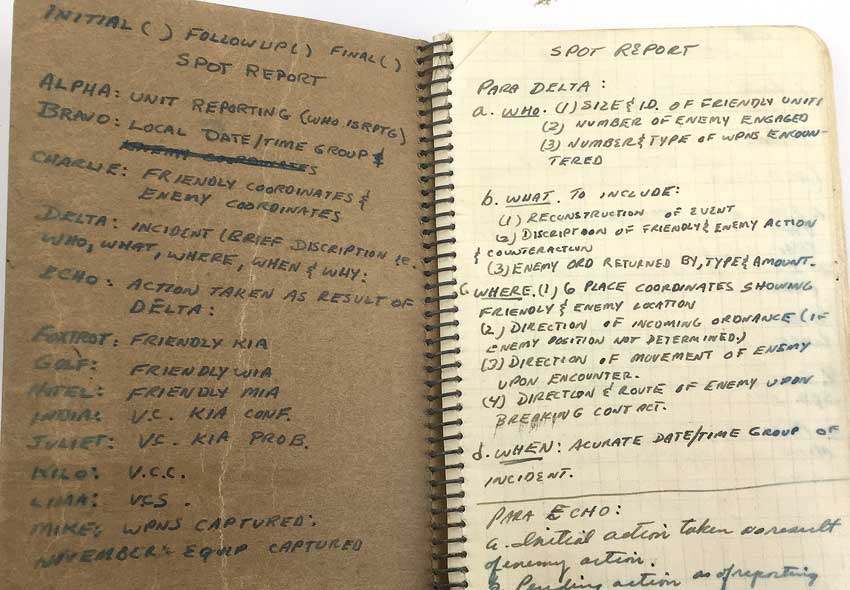 INITIAL ( ) FOLLOWUP ( ) FINAL ( )
SPOT REPORT
ALPHA: UNIT REPORTING (WHO IS RPTG)
BRAVO: LOCAL DATE/TIME GROUP &
ENEMY COORDINATES
CHARLIE: FRIENDLY COORDINATES &
ENEMY COORDINATES
DELTA: INCIDENT (BRIEF DISCRIPTION i.e.
WHO, WHAT, WHERE, WHEN & WHY:
ECHO: ACTION TAKEN AS RESULT OF
DELTA:
FOXTROT: FRIENDLY KIA
GOLF: FRIENDLY WIA
HOTEL: FRIENDLY MIA
INDIA: V.C. KIA CONF.
JULIET: VC. KIA PROB.
KILO: V.C.C.
LIMA: VCS.
MIKE: WPNS CAPTURED:
NOVEMBER: EQUIP CAPTURED
SPOT REPORT
PARA DELTA:
a. WHO. (1) SIZE & I.D. OF FRIENDLY UNITS
(2) NUMBER OF ENEMY ENGAGED
(3) NUMBER & TYPE OF WPNS ENCOUN-
TERED
b. WHAT. TO INCLUDE:
(1) RECONSTRUCTION OF EVENT
(2) DISCRIPTION OF FRIENDLY & ENEMY ACTION
& COUNTERACTION
(3) ENEMY ORD RETURNED BY, TYPE & AMOUNT.
C. WHERE. (1) 6 PLACE COORDINATES SHOWING
FRIENDLY & ENEMY LOCATION
(2) DIRECTION OF INCOMING ORDNANCE (IF
ENEMY POSITION NOT DETERMINED.)
(3) DIRECTION OF MOVEMENT OF ENEMY
UPON ENCOUNTER.
(4) DIRECTION & ROUTE OF ENEMY UPON
BREAKING CONTACT.
d. WHEN: ACURATE DATE/TIME GROUP OF
INCIDENT.
PARA ECHO:
a. Initial action taken as result
of enemy action.
b. Pending action as of reporting